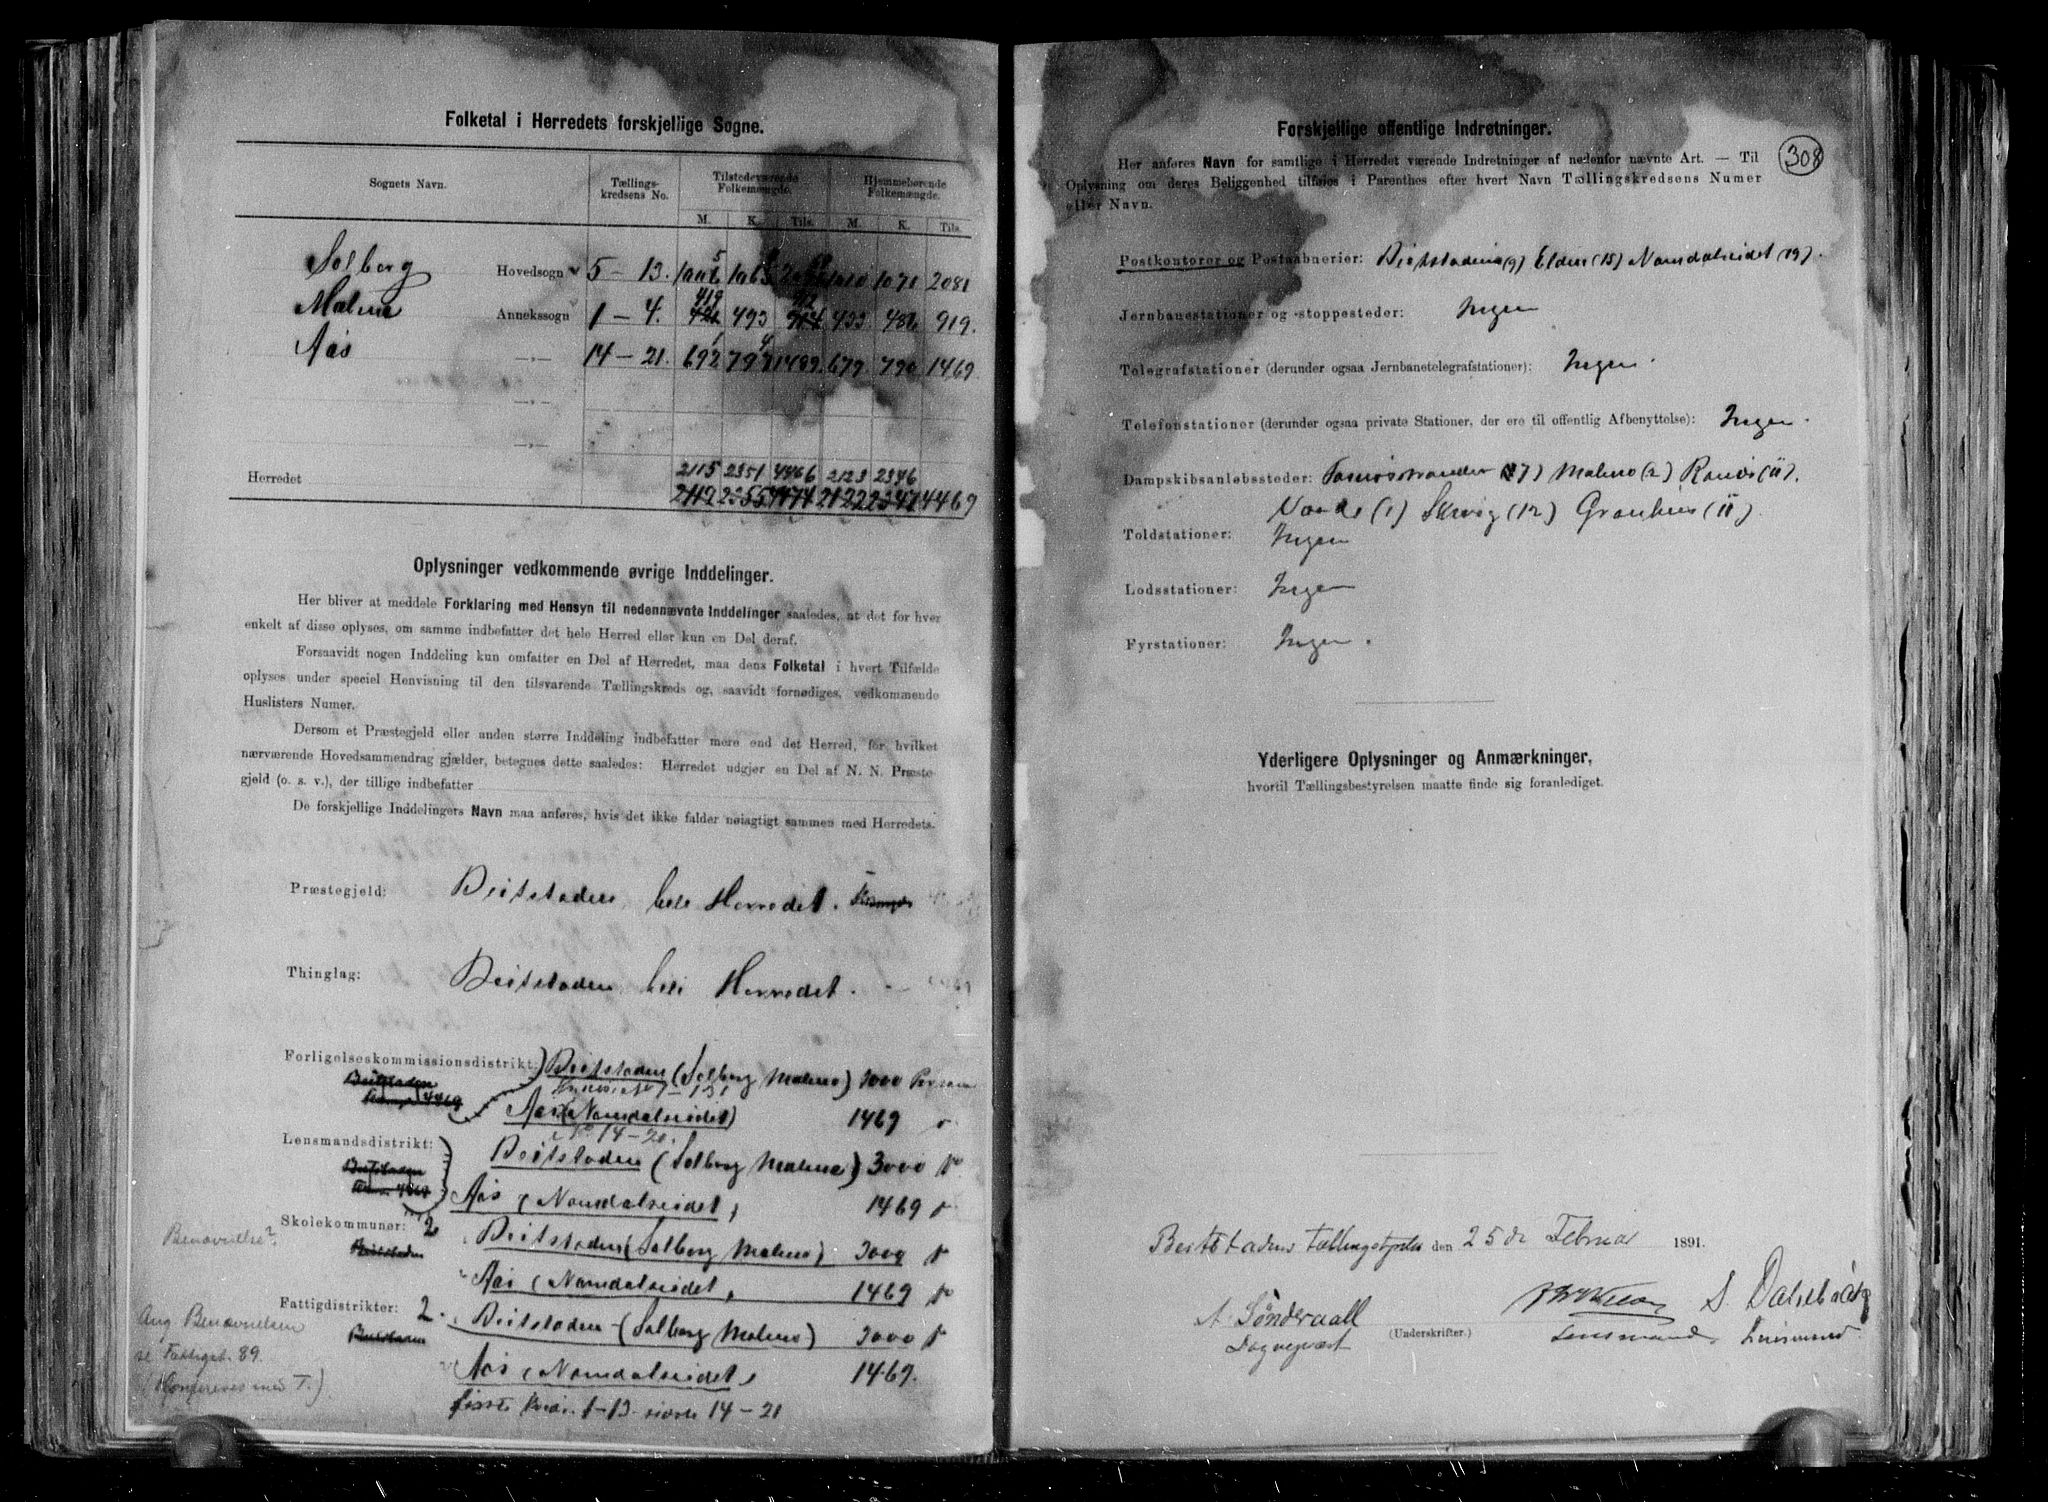 Folketal i Herredets forskjellige Sogne.
Sognets Navn. Tællings-kredsens No. Tilstedeværende Folkemængde. Hjemmehørende Folkemængde.
M. K. Tils. M. K. Tils.
Solberg Hovedsogn 5 – 13. 1010 1071 2081
Malmo Annekssogn 1 – 4. 419 493 912 433 486 919.
Aas –„– 14 – 21. 679 790 1469
–„–
–„–
2115 2351 4466 2123 2346
Herredet 4469
Oplysninger vedkommende øvrige Inddelinger.
Her bliver at meddele Forklaring med Hensyn til nedennævnte Inddelinger saaledes, at det for hver
enkelt af disse oplyses, om samme indbefatter det hele Herred eller kun en Del deraf.
Forsaavidt nogen Inddeling kun omfatter en Del af Herredet, maa dens Folketal i hvert Tilfælde
oplyses under speciel Henvisning til den tilsvarende Tællingskreds og, saavidt fornødiges, vedkommende
Huslisters Numer.
Dersom et Præstegjeld eller anden større Inddeling indbefatter mere end det Herred, for hvilket
nærværende Hovedsammendrag gjælder, betegnes dette saaledes: Herredet udgjør en Del af N. N. Præste-
gjeld (o. s. v.), der tillige indbefatter
De forskjellige Inddelingers Navn maa anføres, hvis det ikke falder nøiagtigt sammen med Herredets.
Præstegjeld: Beitstaden, hele Herredet.
Thinglag: Beitstaden hele Herredet.
Forligelseskommissionsdistrikt: Beitstaden (Solberg Malmo) 3000 Person
Beitstaden
4469 Aas (Namdalseidet) 1469 "
No 14 – 21.
Lensmandsdistrikt: Beitstaden (Solberg Malmo) 3000 "
Beitstaden
4469 Aas (Namdalseidet, 1469 "
Skolekommuner: 2 Beitstaden (Solberg Malmo) 3000 "
Benævnelse?
Beitstaden
Aas (Namdalseidet, 1469 "
Fattigdistrikter: 2. Beitstaden (Solberg Malmo) 3000 "
Ang Benævnelsen
Beitstaden
se Fattigst. 89. Aas (Namdalseidet, 1469.
(Konfereres med T.)
første Kreds. 1–13. sidste 14 – 21
308
Forskjellige offentlige Indretninger.
Her anføres Navn for samtlige i Herredet værende Indretninger af nedenfor nævnte Art. — Til
Oplysning om deres Beliggenhed tilføies i Parenthes efter hvert Navn Tællingskredsens Numer
eller Navn.
Postkontorer og Postaabnerier: Beitstaden (9) Elden (15) Namdalseidet (19).
Jernbanestationer og -stoppesteder: Ingen
Telegrafstationer (derunder ogsaa Jernbanetelegrafstationer): Ingen.
Telefonstationer (derunder ogsaa private Stationer, der ere til offentlig Afbenyttelse): Ingen.
Dampskibsanløbssteder: (7) Malmo (2) (11).
(1) (12) (11)
Toldstationer: Ingen
Lodsstationer: Ingen
Fyrstationer: Ingen.
Yderligere Oplysninger og Anmærkninger,
hvortil Tællingsbestyrelsen maatte finde sig foranlediget.
Beitstadens den 25de Februar 1891.
A Sønderaall S. Dalebak
(Underskrifter.) Lensmand. Lensmand.